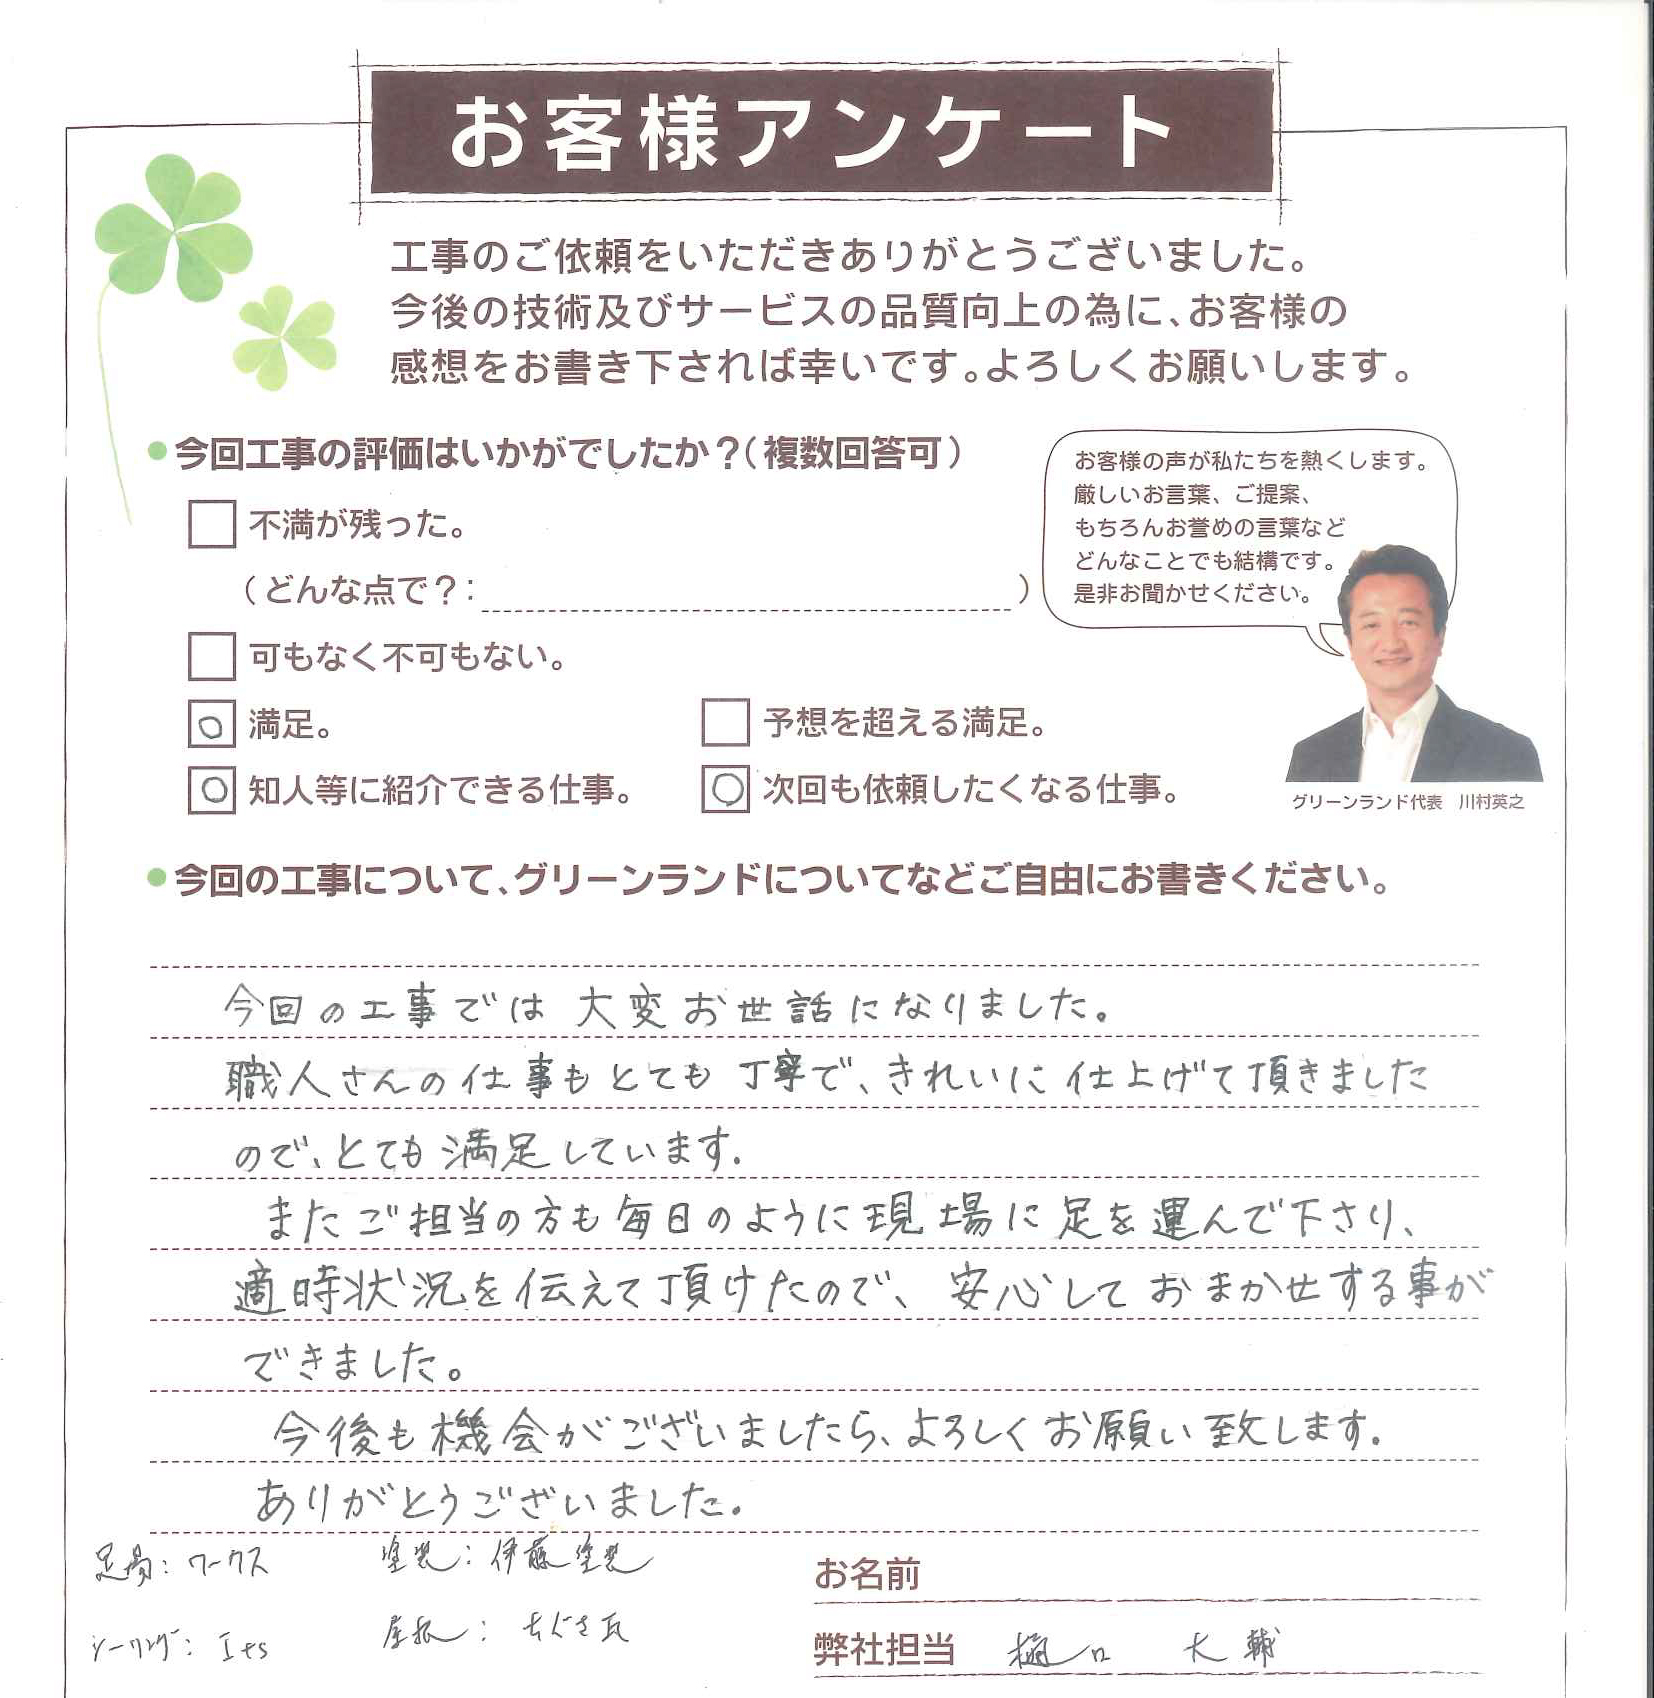 お客様アンケート
工事のご依頼をいただきありがとうございました。
今後の技術及びサービスの品質向上の為に、お客様の
感想をお書き下されば幸いです。よろしくお願いします。
●今回工事の評価はいかがでしたか？（複数回答可）
不満が残った。
（どんな点で？：　）
可もなく不可もない。
○ 満足。
予想を超える満足。
○ 知人等に紹介できる仕事。
○ 次回も依頼したくなる仕事。
お客様の声が私たちを熱くします。
厳しいお言葉、ご提案、
もちろんお誉めの言葉など
どんなことでも結構です。
是非お聞かせください。
グリーンランド代表　川村英之
●今回の工事について、グリーンランドについてなどご自由にお書きください。
今回の工事では大変お世話になりました。
職人さんの仕事もとても丁寧で、きれいに仕上げて頂きました
ので、とても満足しています.
またご担当の方も毎日のように現場に足を運んで下さり、
適時状況を伝えて頂けたので、安心しておまかせする事が
できました。
今後も機会がございましたら、よろしくお願い致します.
ありがとうございました.
足場：ワークス
塗装：伊藤塗装
シーリング：Its
屋根：ちぐさ瓦
お名前
弊社担当　樋口　大輔